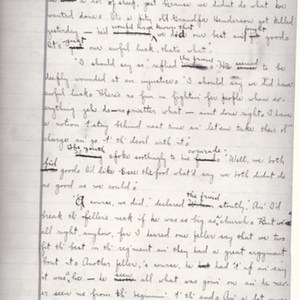 a lot of sheep, jest because we didn't do what he
wanted done. It's a pity old Grandfer Henderson got killed
yesterday — he'd have known that we did our best and fought good
It's our awful luck, that's what."
"I should say so," replied the friend. He seemed to be
deeply wounded at an injustice. "I should say we did have
awful luck! There's no fun in fightin' fer people when ev-
anything yeh do — no matter what — aint done right. I have
a notion t' stay behind next time an' let 'em take their ol'
charge an' go t' th' devil with it."
The youth spoke soothingly to his comrade. "Well, we both
did good. I'd like t' see the fool what'd say we both didn't do
as good as we could."
"Of course, we did," declared the friend stoutly. "An' I'd
break th' feller's neck if he was as big as a church. But we're
all right, anyhow, for I heared one feller say that we two
fit th' best in th' regiment an' they had a great argyment
'bout it. Another feller, 'a course, he had t' up an' say
it was a lie — he seen all what was goin' on an' he nev-
er seen us from th' beginnin' t' th' end. An' a lot